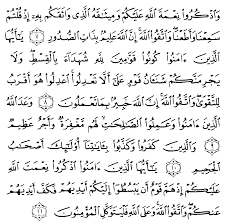 وَٱذْكُرُوا۟ نِعْمَةَ ٱللَّهِ عَلَيْكُمْ وَمِيثَٰقَهُ ٱلَّذِى وَاثَقَكُم بِهِۦٓ إِذْ قُلْتُمْ
سَمِعْنَا وَأَطَعْنَا وَٱتَّقُوا۟ ٱللَّهَ إِنَّ ٱللَّهَ عَلِيمٌۢ بِذَاتِ ٱلصُّدُورِ ٧ يَٰٓأَيُّهَا
ٱلَّذِينَ ءَامَنُوا۟ كُونُوا۟ قَوَّٰمِينَ لِلَّهِ شُهَدَآءَ بِٱلْقِسْطِ وَلَا
يَجْرِمَنَّكُمْ شَنَـَٔانُ قَوْمٍ عَلَىٰٓ أَلَّا تَعْدِلُوا۟ ٱعْدِلُوا۟ هُوَ أَقْرَبُ
لِلتَّقْوَىٰ وَٱتَّقُوا۟ ٱللَّهَ إِنَّ ٱللَّهَ خَبِيرٌۢ بِمَا تَعْمَلُونَ ٨ وَعَدَ ٱللَّهُ
ٱلَّذِينَ ءَامَنُوا۟ وَعَمِلُوا۟ ٱلصَّٰلِحَٰتِ لَهُم مَّغْفِرَةٌ وَأَجْرٌ عَظِيمٌ
٩ وَٱلَّذِينَ كَفَرُوا۟ وَكَذَّبُوا۟ بِـَٔايَٰتِنَآ أُو۟لَٰٓئِكَ أَصْحَٰبُ
ٱلْجَحِيمِ ١٠ يَٰٓأَيُّهَا ٱلَّذِينَ ءَامَنُوا۟ ٱذْكُرُوا۟ نِعْمَتَ ٱللَّهِ
عَلَيْكُمْ إِذْ هَمَّ قَوْمٌ أَن يَبْسُطُوٓا۟ إِلَيْكُمْ أَيْدِيَهُمْ فَكَفَّ أَيْدِيَهُمْ
عَنكُمْ وَٱتَّقُوا۟ ٱللَّهَ وَعَلَى ٱللَّهِ فَلْيَتَوَكَّلِ ٱلْمُؤْمِنُونَ ١١